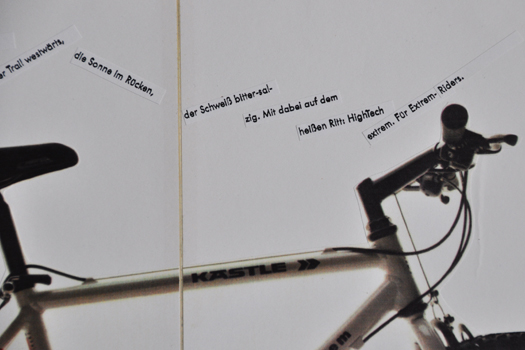 er Trail westwärts,
die Sonne im Rücken,
der Schweiß bitter-sal-
zig. Mit dabei auf dem
heißen Ritt: HighTech
extrem. Für Extrem- Riders.
KÄSTLE